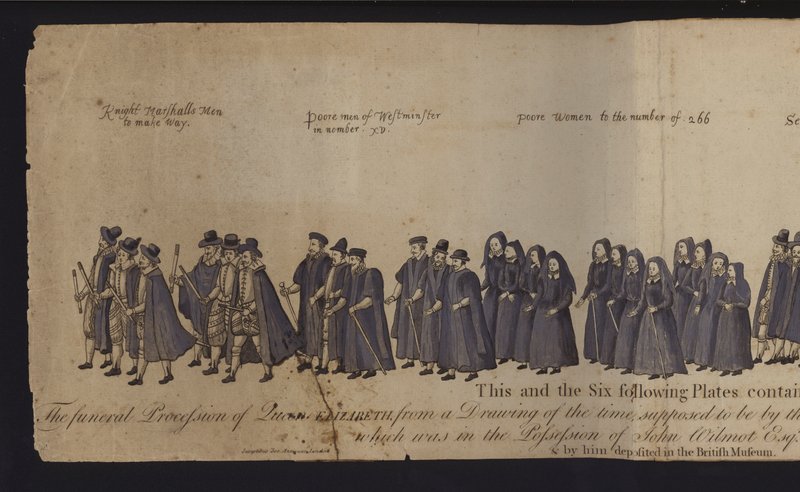 Knight Marſhalls Men
to make Way.
poore men of Weſtminſter
in nomber. XV.
poore Women to the number of 266
Se
This and the Six following Plates contain
The funeral Proceſsion of Queen ELIZABETH, from a Drawing of the time, supposed to be by th
which was in the Poſseſsion of John Wilmot Esq.
& by him deposited in the Britiſh Muſeum.
Sumptibus Soc. Antiquar. Londini